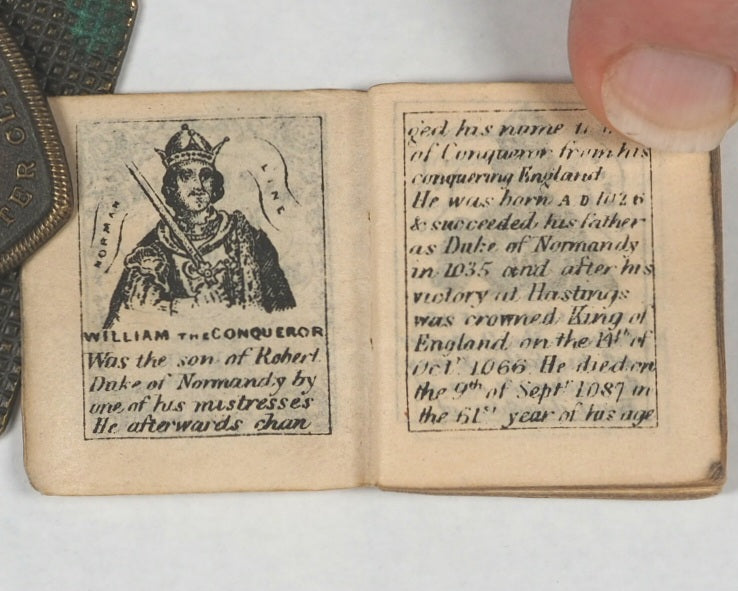 PER CU
NORMAN
LINE
WILLIAM THE CONQUEROR
Was the son of Robert
Duke of Normandy by
one of his mistresses
He afterwards chan
ged his name to
of Conqueror from his
conquering England
He was born A D 1026
& succeeded his father
as Duke of Normandy
in 1035 and after his
victory at Hastings
was crowned King of
England on the 14th of
Octr. 1066. He died on
the 9th of Septr 1087 in
the 61st year of his age